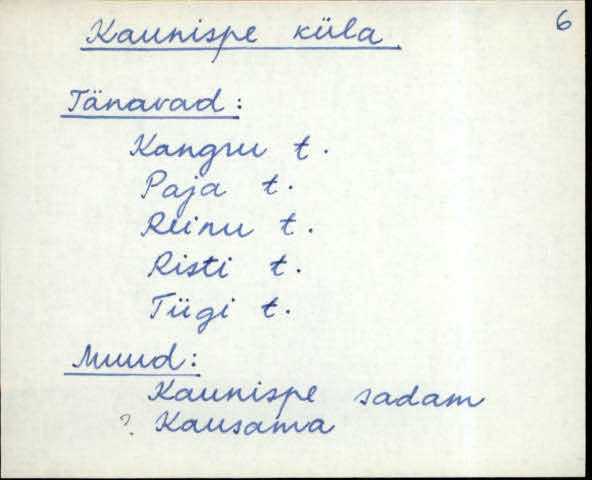 6
Kaunispe küla.
Tänavad:
Kangru t.
Paja t.
Reinu t.
Risti t.
Tiigi t.
Muud:
Kaunispe sadam
? Kausama